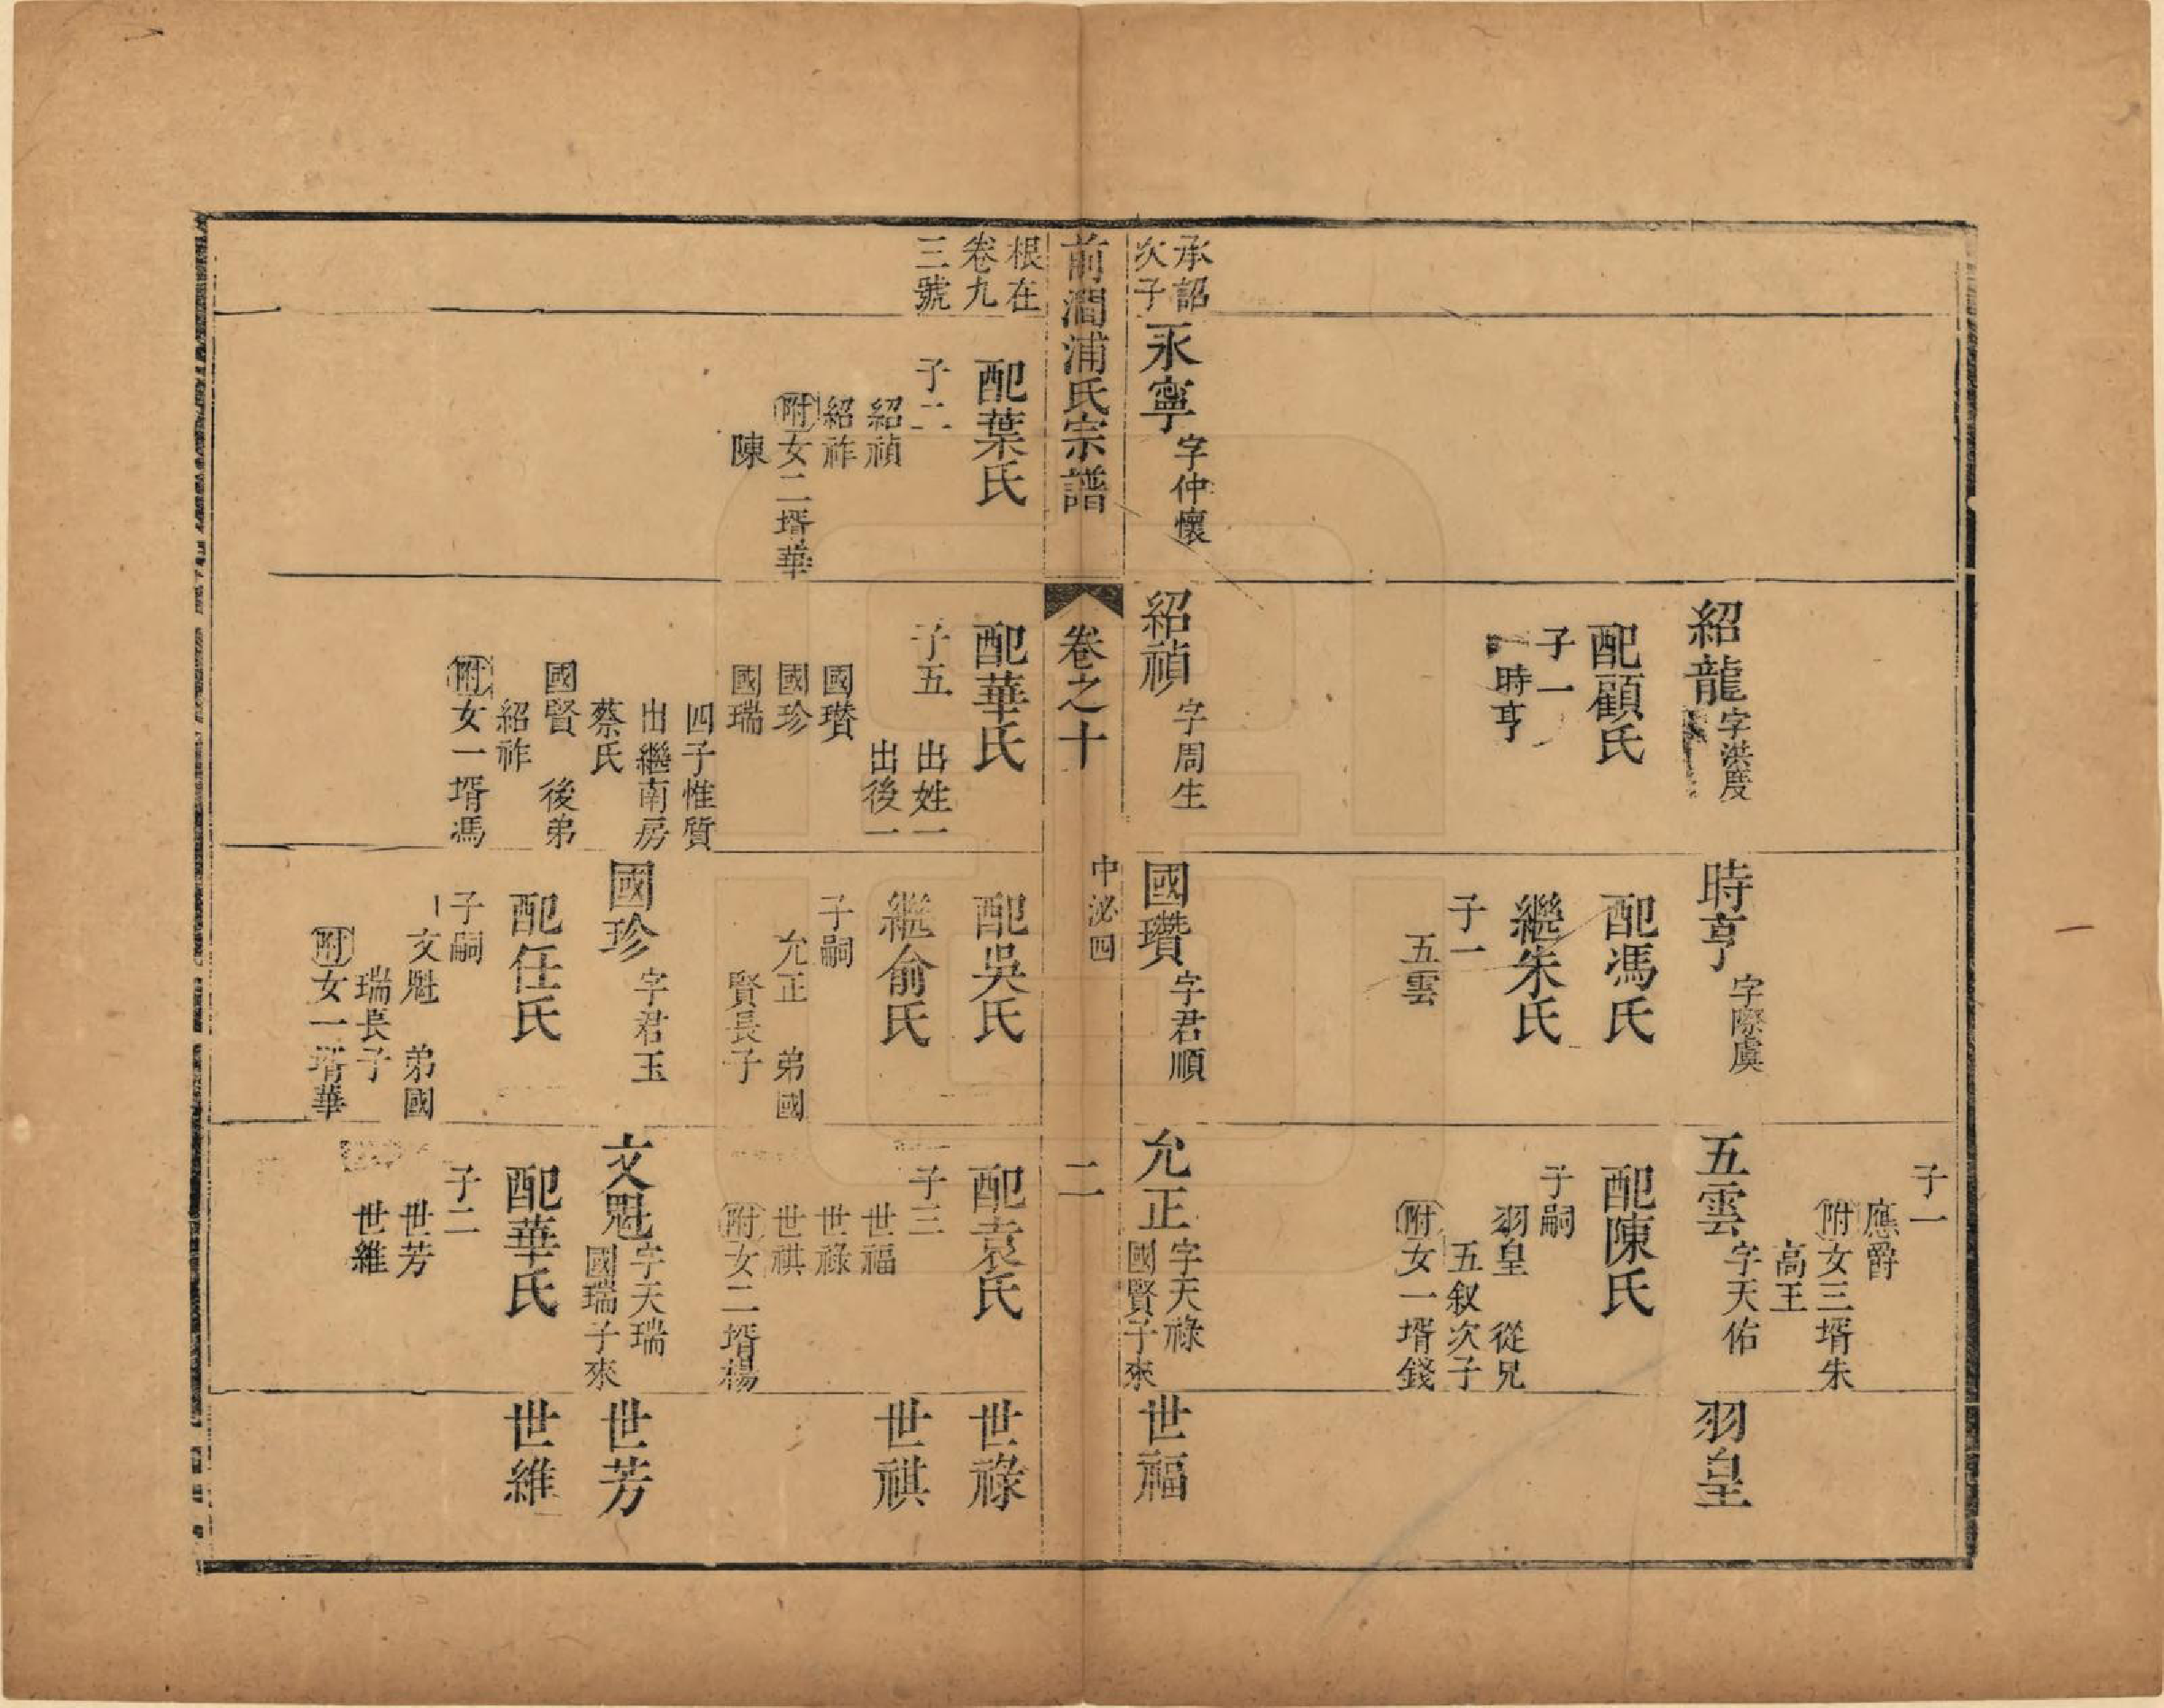 子一
應爵
附女三壻朱
高王
紹龍字洪度
時亨字際虞
五雲字天佑
羽皇
配顧氏
子一
時亨
配馮氏
繼朱氏
子一
五雲
配陳氏
子嗣
羽皇　從兄
五叙次子
附女一壻錢
承詔
次子
永寧字仲懷
紹禎字周生
國瓚字君順
允正字天祿
國賢子來
世福
前澗浦氏宗譜
卷之十
中泌四
二
根在
卷九
三號
配葉氏
子二
紹禎
紹祚
附女二壻華
陳
配華氏
子五　出姓一
出後一
國瓚
國珍
國瑞
四子惟質
出繼南房
蔡氏
國賢　後弟
紹祚
附女一壻馮
配吳氏
繼俞氏
子嗣
允正　弟國
賢長子
國珍字君玉
配任氏
子嗣
文魁　弟國
瑞長子
附女一壻華
配袁氏
子三
世福
世祿
世祺
附女二壻楊
文魁字天瑞
國瑞子來
配華氏
子二
世芳
世維
世祿
世祺
世芳
世維